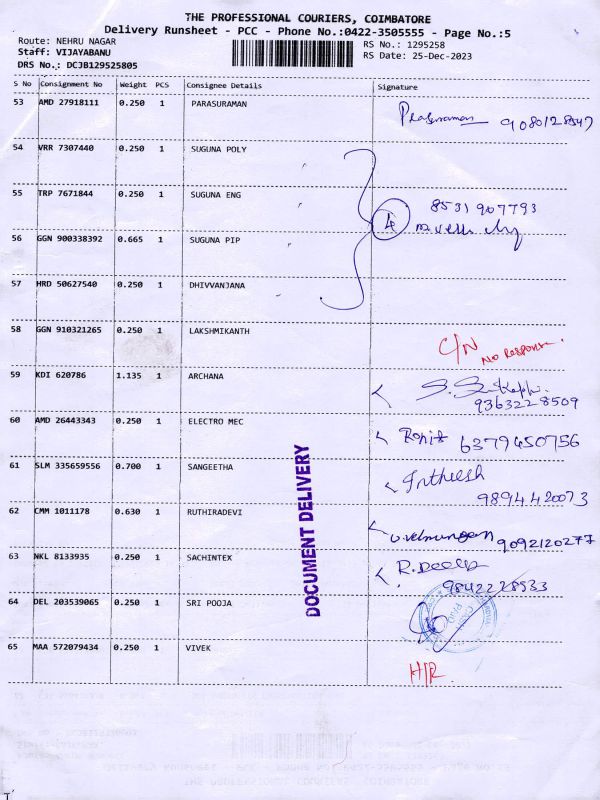 THE PROFESSIONAL COURIERS, COIMBATORE
Delivery Runsheet - PCC - Phone No.:0422-3505555 - Page No.:5
Route: NEHRU NAGAR
RS No.: 1295258
Staff: VIJAYABANU
RS Date: 25-Dec-2023
DRS No.: DCJB129525805
S No Consignment No Weight PCS Consignee Details Signature
53 AMD 27918111 0.250 1 PARASURAMAN Parasuraman 9080128547
54 VRR 7307440 0.250 1 SUGUNA POLY
55 TRP 7671844 0.250 1 SUGUNA ENG 8531907793
4
56 GGN 900338392 0.665 1 SUGUNA PIP
57 HRD 50627540 0.250 1 DHIVVANJANA
58 GGN 910321265 0.250 1 LAKSHMIKANTH C/N NO RESPONSE.
59 KDI 620786 1.135 1 ARCHANA
9363228509
60 AMD 26443343 0.250 1 ELECTRO MEC Ronit 6379450756
61 SLM 335659556 0.700 1 SANGEETHA
9894420073
62 CMM 1011178 0.630 1 RUTHIRADEVI U.Velmurugan 9092120277
63 NKL 8133935 0.250 1 SACHINTEX R.Deelip
9842228533
64 DEL 203539065 0.250 1 SRI POOJA
65 MAA 572079434 0.250 1 VIVEK H/R
DOCUMENT DELIVERY